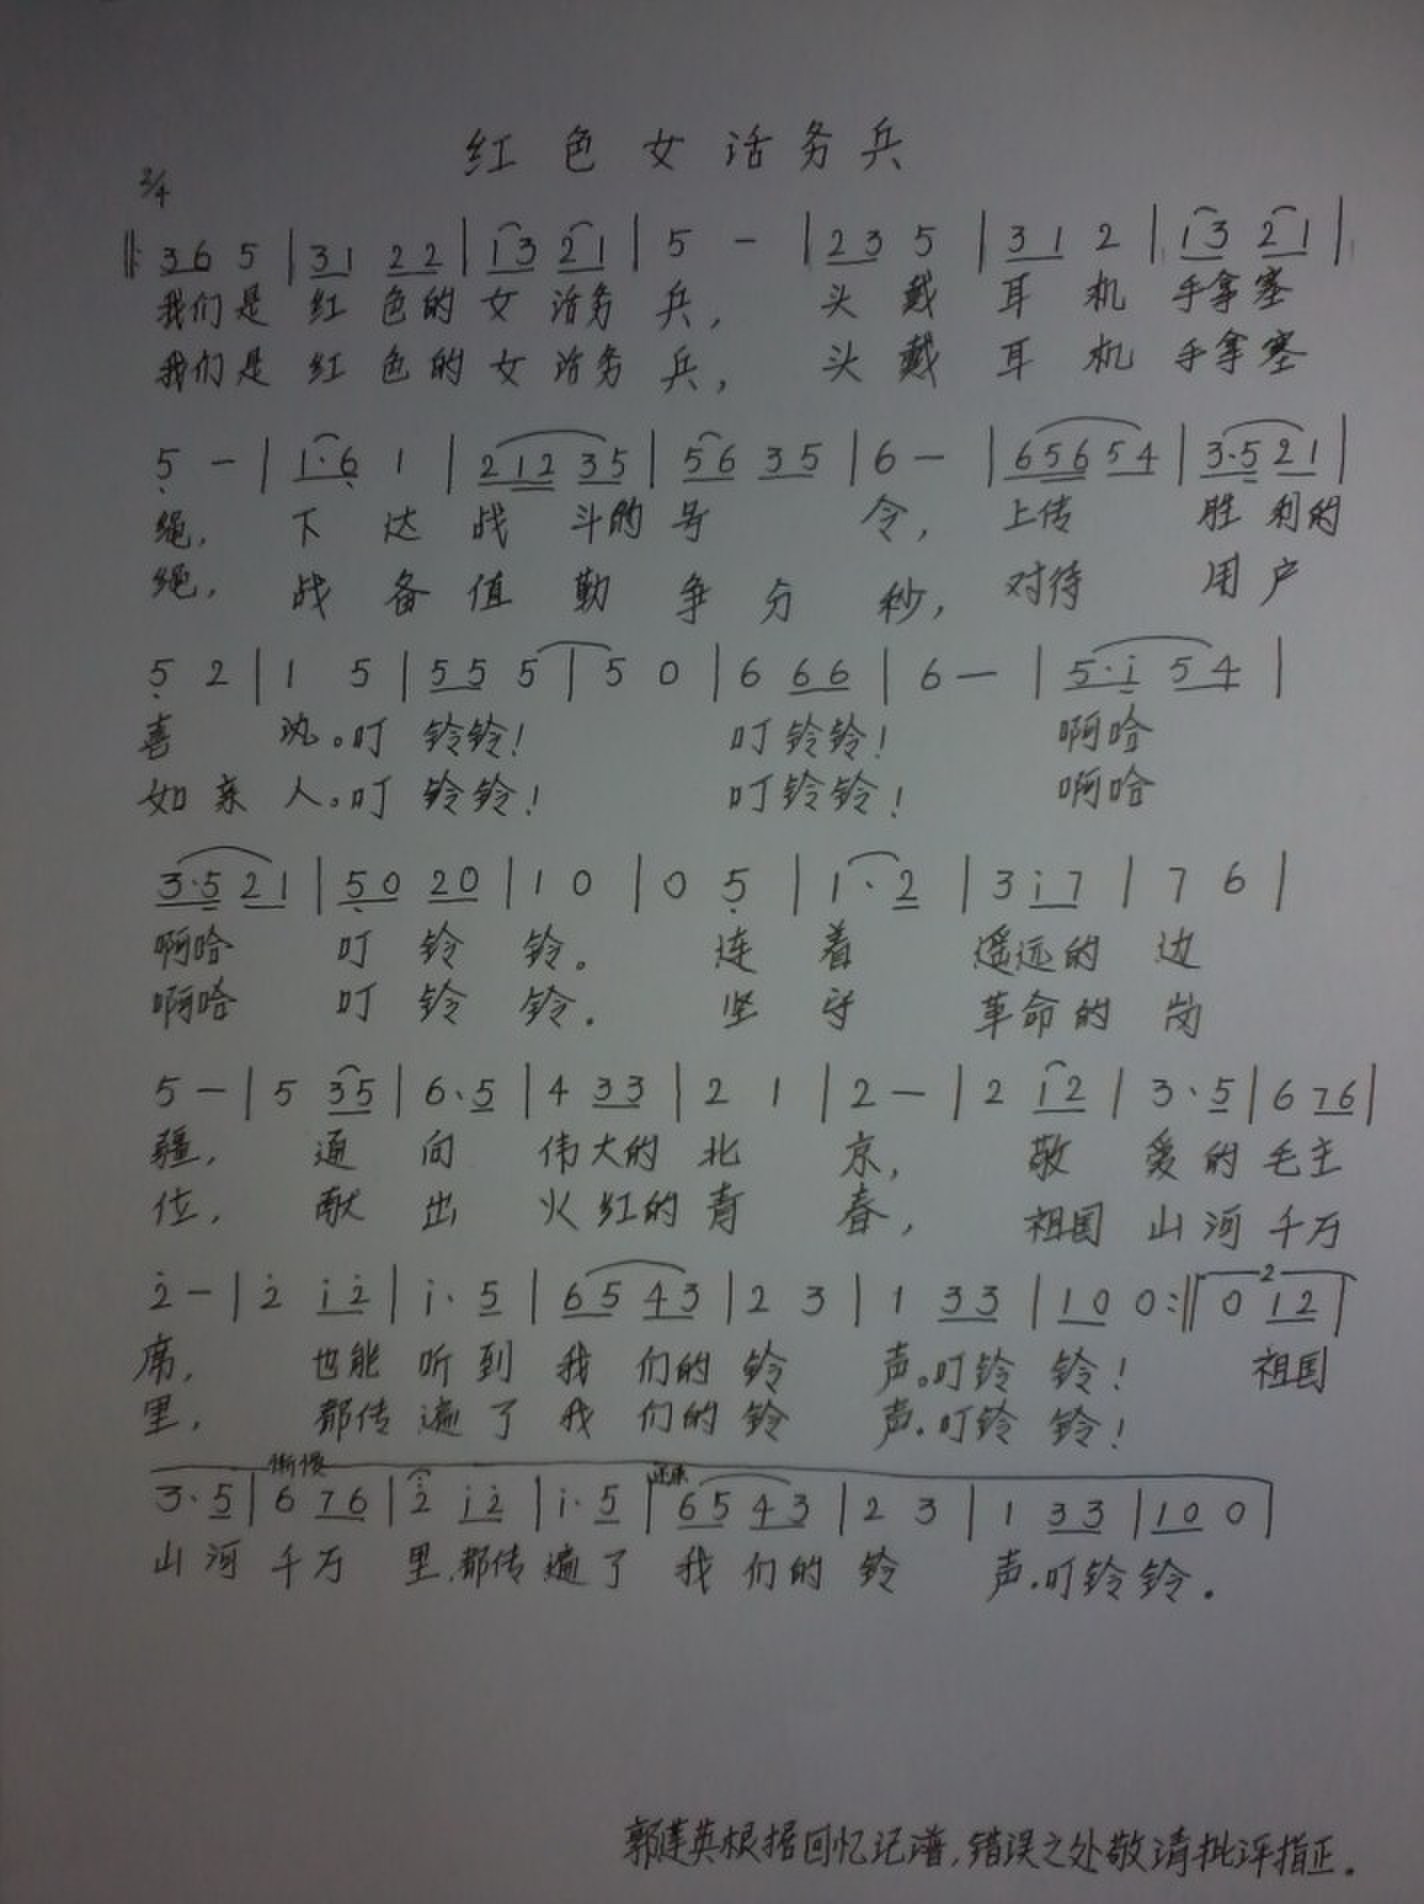 红色女话务兵
2/4
‖: 36 5 | 31 22 | 13 21 | 5 - | 23 5 | 31 2 | 13 21 |
我们是 红 色的 女 话务 兵， 头 戴 耳 机 手拿塞
我们是 红 色的 女 话务 兵， 头 戴 耳 机 手拿塞
5̣ - | 1·6̣ 1 | 212 35 | 56 35 | 6 - | 656 54 | 3·5 21 |
绳， 下 达 战 斗的 号 令， 上传 胜 利的
绳， 战 备 值 勤 争 分 秒， 对待 用 户
5̣ 2 | 1 5 | 55 5 | 5 0 | 6 66 | 6 — | 5·i 54 |
喜 讯。叮 铃铃！ 叮铃铃！ 啊哈
如亲 人。叮 铃铃！ 叮铃铃！ 啊哈
3·5 21 | 5̣0 20 | 1 0 | 0 5̣ | 1·2 | 3 i7 | 7 6 |
啊哈 叮 铃 铃。 连 着 遥远的 边
啊哈 叮 铃 铃. 坚 守 革命的 岗
5 — | 5 35 | 6·5 | 4 33 | 2 1 | 2 — | 2 12 | 3·5 | 6 76 |
疆， 通 向 伟大的 北 京， 敬 爱的 毛主
位， 献 出 火红的 青 春， 祖国 山河 千万
2̇ - | 2̇ i2̇ | i·5 | 65 43 | 2 3 | 1 33 | 10 0 :‖ 2 0 12 |
席， 也能 听到 我 们的 铃 声。叮铃 铃！ 祖国
里， 都传 遍了 我 们的 铃 声.叮铃 铃！
渐慢 还原
3·5 | 6 76 | 2̇ i2̇ | i·5 | 65 43 | 2 3 | 1 33 | 10 0 |
山河 千万 里.都传 遍了 我 们的 铃 声.叮铃铃.
郭莲英根据回忆记谱，错误之处敬请批评指正.